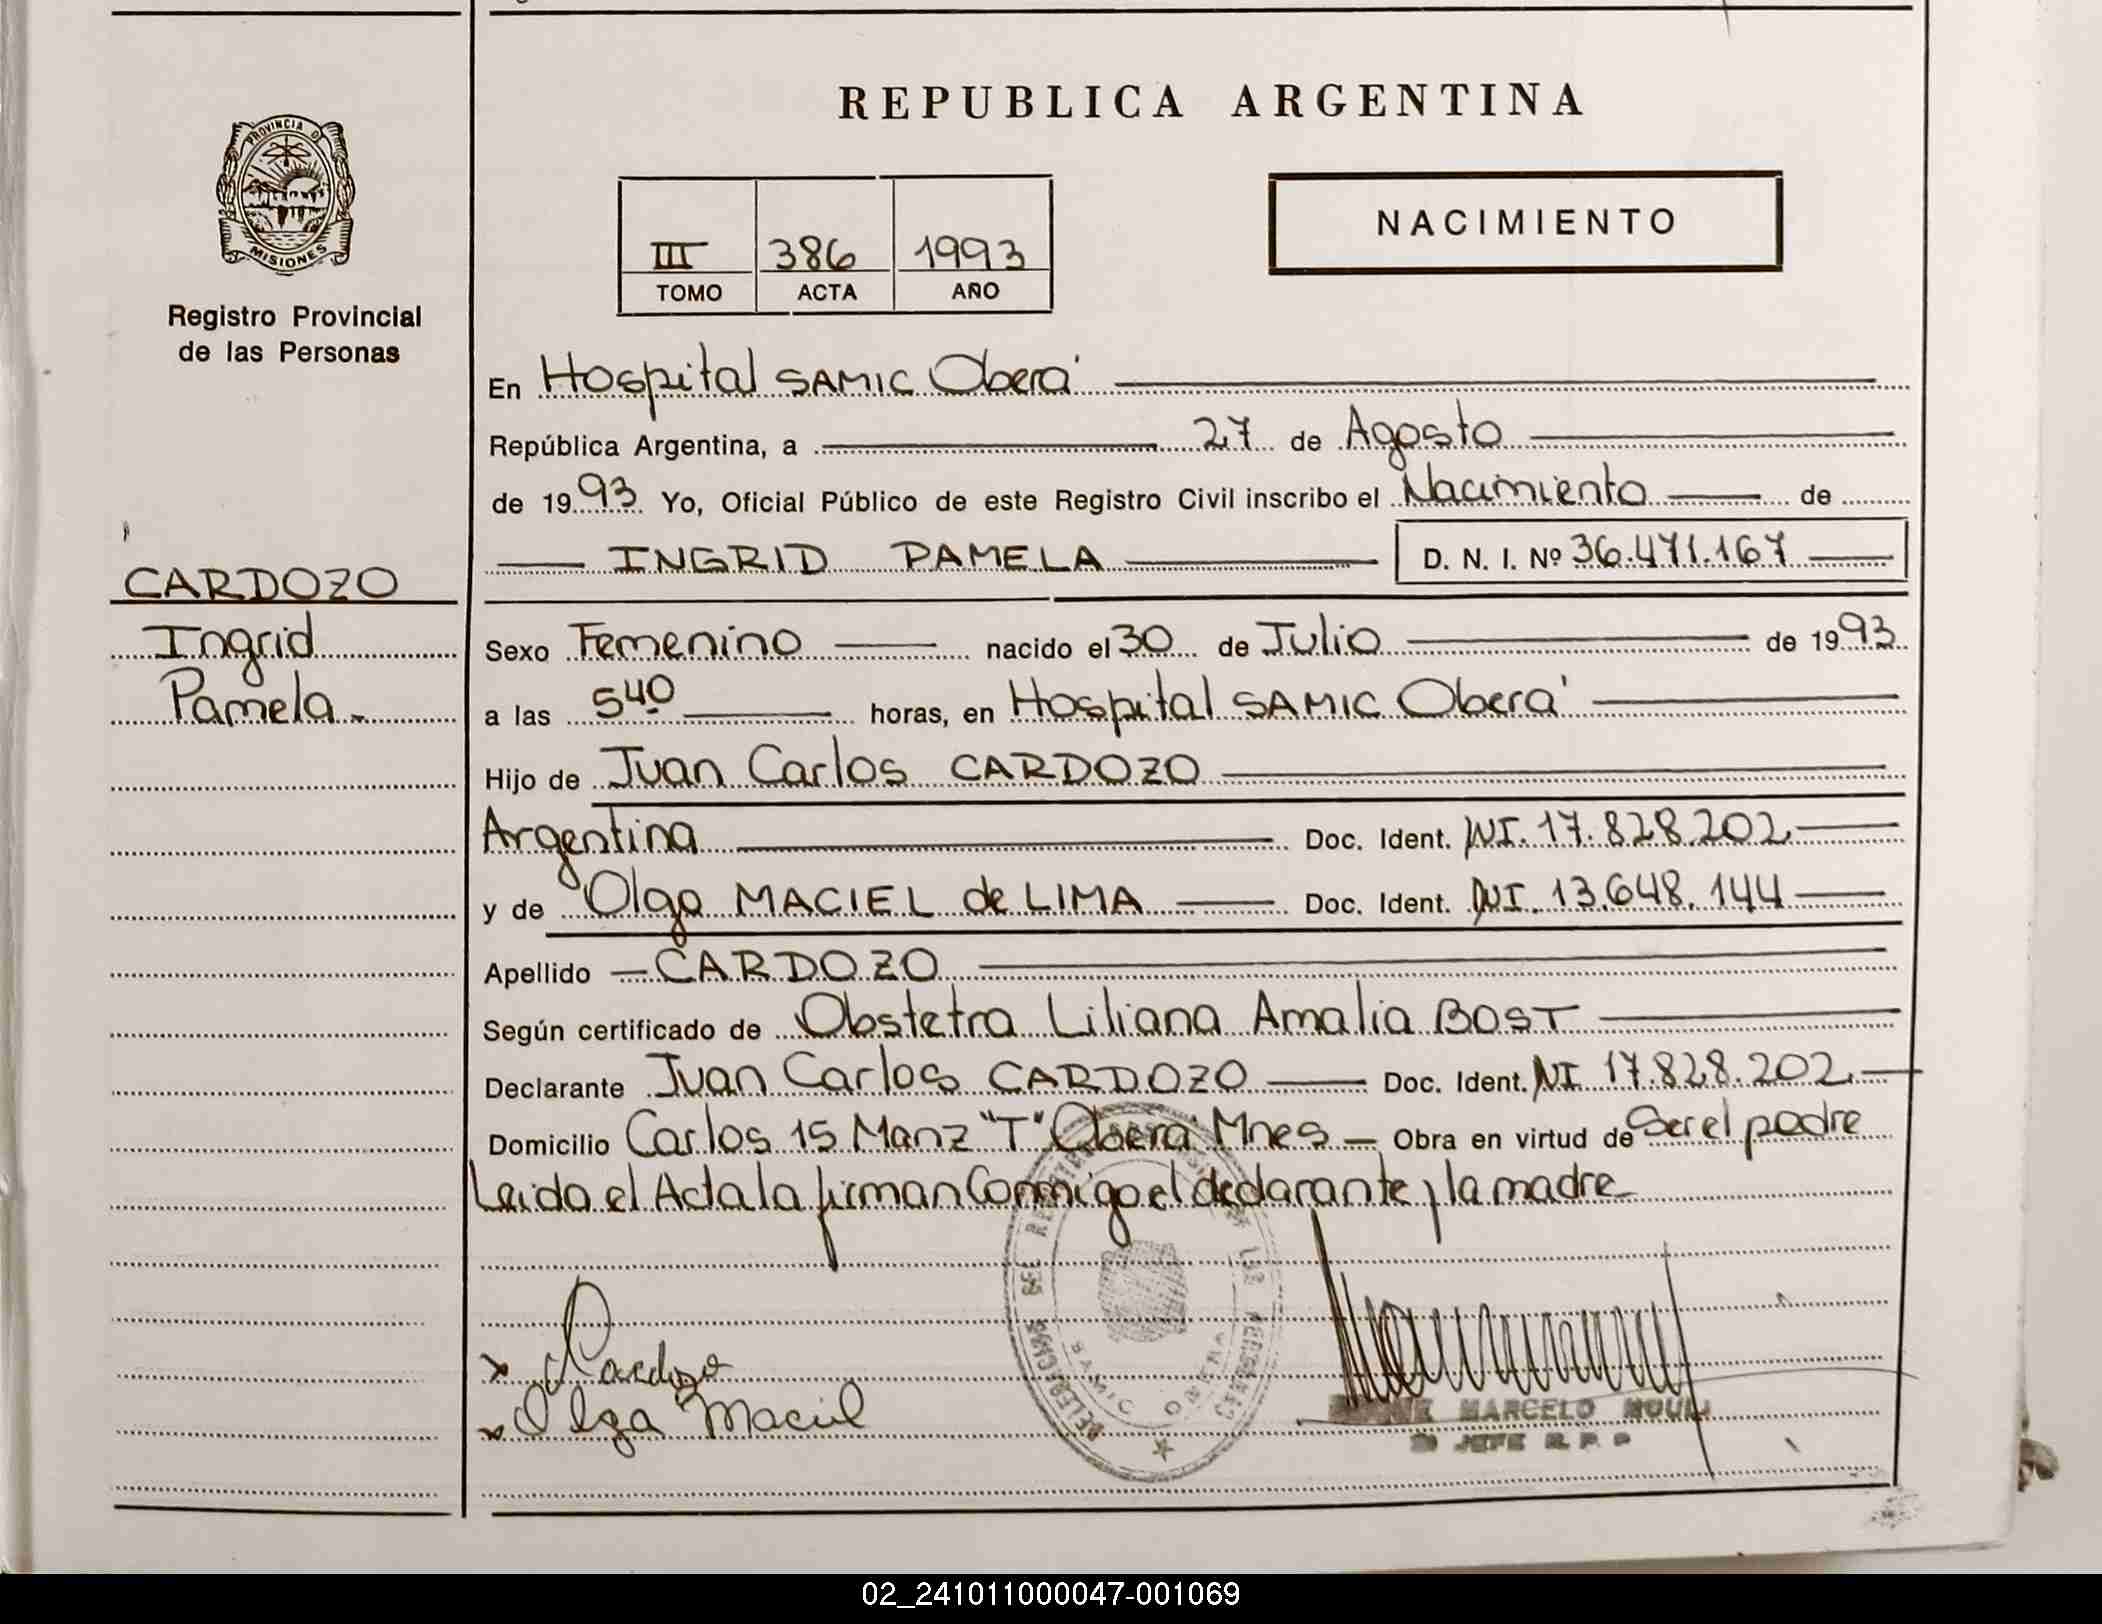 REPUBLICA ARGENTINA
PROVINCIA D
MISIONES
Registro Provincial
de las Personas
NACIMIENTO
III 386 1993
TOMO ACTA AÑO
En Hospital SAMIC Oberá
República Argentina, a 27 de Agosto
de 1993 Yo, Oficial Público de este Registro Civil inscribo el Nacimiento de
INGRID PAMELA D. N. I. Nº 36.471.167
CARDOZO
Ingrid
Pamela.-
Sexo Femenino nacido el 30 de Julio de 1993
a las 5:40 horas, en Hospital SAMIC Oberá
Hijo de Juan Carlos CARDOZO
Argentina Doc. Ident. DNI. 17.828.202
y de Olga MACIEL de LIMA Doc. Ident. DNI. 13.648.144
Apellido CARDOZO
Según certificado de Obstetra Liliana Amalia BOST
Declarante Juan Carlos CARDOZO Doc. Ident. DNI 17.828.202
Domicilio Carlos 15 Manz "T" Oberá Mnes Obra en virtud de Ser el padre
Leida el Acta la firman Conmigo el declarante y la madre
x Cardozo
x Olga Maciel
SAMIC OBERA
MARCELO
JEFE R. P. P
02_241011000047-001069